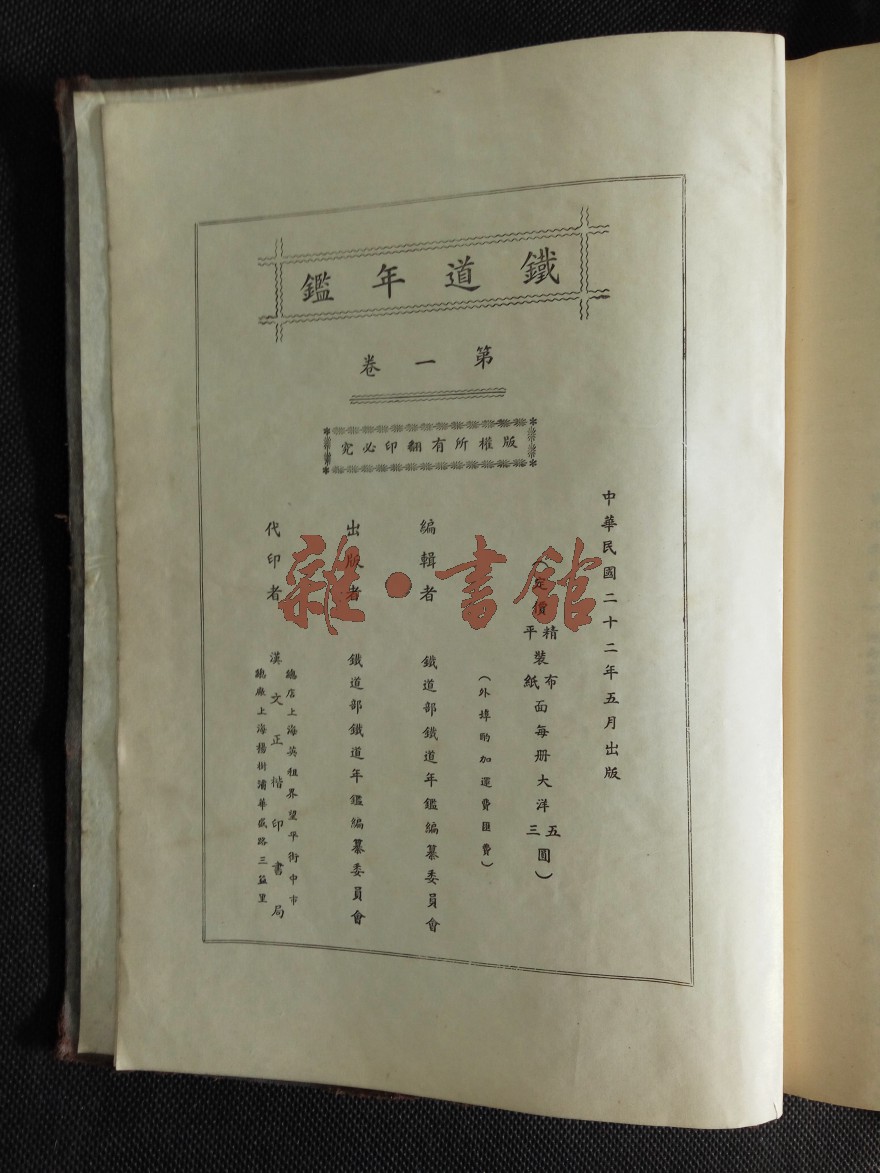 鐵道年鑑
第一卷
版權所有翻印必究
中華民國二十二年五月出版
（定價 精平裝布紙面每册大洋五三圓）
（外埠酌加運費匯費）
編輯者 鐵道部鐵道年鑑編纂委員會
出版者 鐵道部鐵道年鑑編纂委員會
代印者 漢文正楷印書局
總店上海英租界望平街中市
總廠上海楊樹浦華盛路三益里
雜·書館